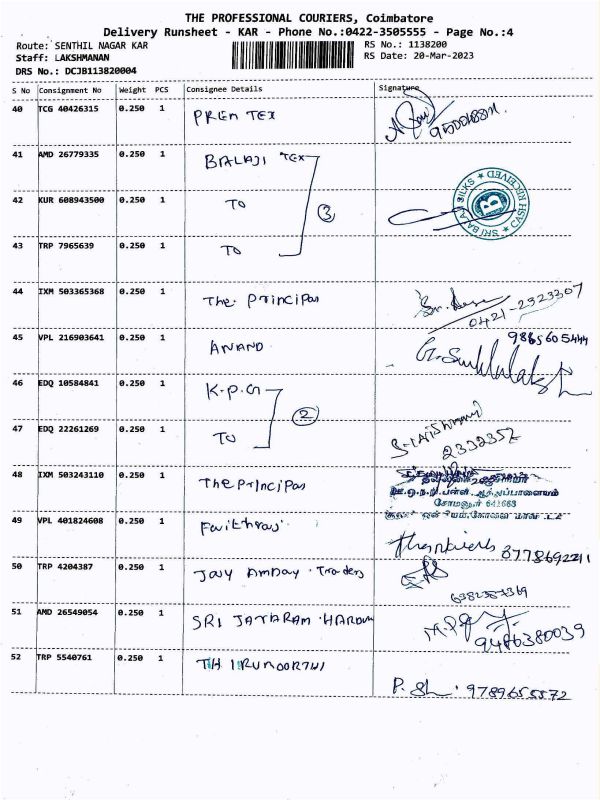 THE PROFESSIONAL COURIERS, Coimbatore
Delivery Runsheet - KAR - Phone No.:0422-3505555 - Page No.:4
Route: SENTHIL NAGAR KAR
RS No.: 1138200
Staff: LAKSHMANAN
RS Date: 20-Mar-2023
DRS No.: DCJB113820004
S No Consignment No Weight PCS Consignee Details Signature
40 TCG 40426315 0.250 1 PREM TEX
41 AMD 26779335 0.250 1 BALAJI TEX
42 KUR 608943500 0.250 1 TO 3
SRI BALAJI SILKS * CASH RECEIVED *
B
43 TRP 7965639 0.250 1 TO
44 IXM 503365368 0.250 1 The Principal
0421-2323307
45 VPL 216903641 0.250 1 ANAND
9865605444
46 EDQ 10584841 0.250 1 K.P.G 2
47 EDQ 22261269 0.250 1 TO
2332352
48 IXM 503243110 0.250 1 The Principal
சோமனூர் 641668
49 VPL 401824608 0.250 1
50 TRP 4204387 0.250 1 Traders
6382383369
51 AMD 26549054 0.250 1 SRI JAYARAM
9486380039
52 TRP 5540761 0.250 1 THIRUMOORTHI
9789655572